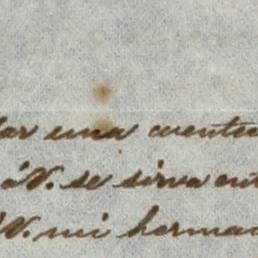 lar una cuenta
á V. se sirva ent
V. mi herma